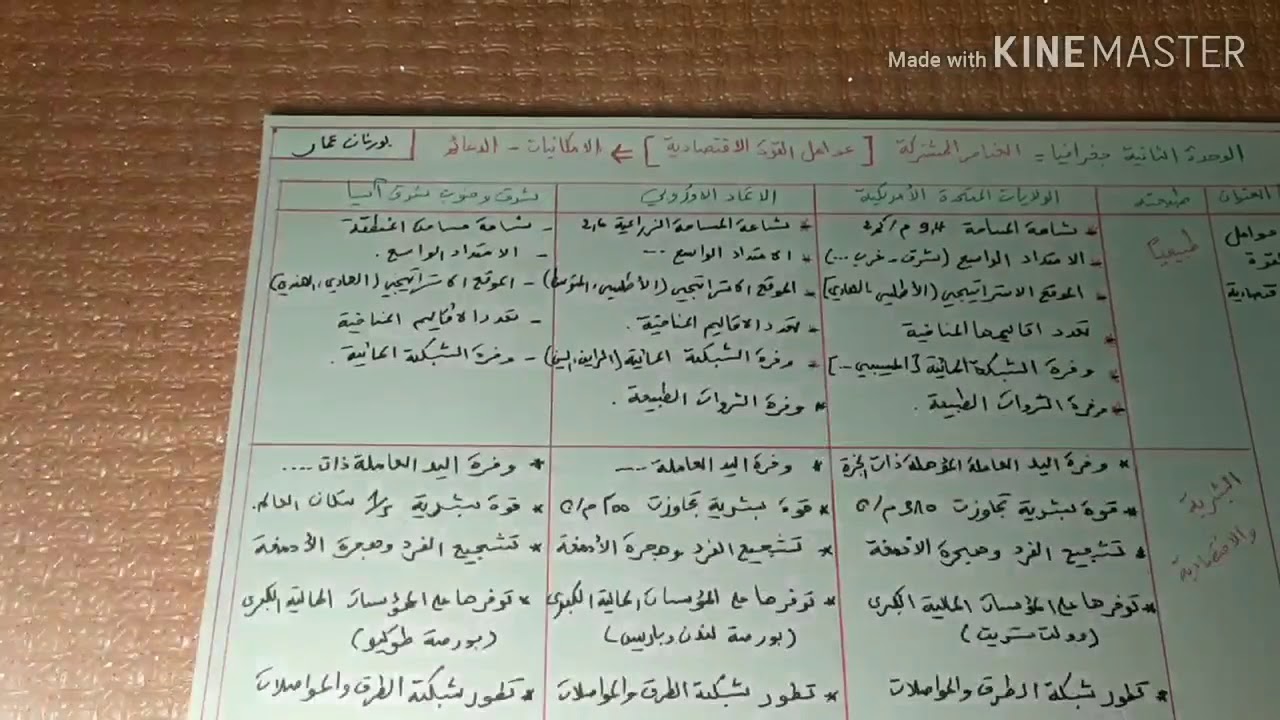 Made with KINEMASTER
بورنان عمار
الوحدة الثانية جغرافيا = العناصر المشتركة [عوامل القوة الاقتصادية] ⇐ الامكانيات - الدعائم
العنوان
الولايات المتحدة الأمريكية
الاتحاد الاوروبي
شرق وجنوب شرق آسيا
عوامل
القوة
طبيعيا
* شساعة المساحة 9,4 م/كم2
- الامتداد الواسع (شرق - غرب ...)
* الموقع الاستراتيجي [الأطلسي، الهادي]
* تعدد اقاليمها المناخية
* وفرة الشبكة المائية [المسيسيبي ...]
* وفرة الثروات الطبيعة .
* شساعة المساحة الزراعية
* الامتداد الواسع ...
* الموقع الاستراتيجي (الأطلسي، المتوسط)
- تعدد الاقاليم المناخية .
* وفرة الشبكة المائية (الراين، السين)
* وفرة الثروات الطبيعة .
- شساعة مساحة المنطقة
- الامتداد الواسع .
- الموقع الاستراتيجي (الهادي، الهندي)
- تعدد الاقاليم المناخية
- وفرة الشبكة المائية .
البشرية
والاقتصادية
* وفرة اليد العاملة المؤهلة ذات الخبرة
* قوة بشرية تجاوزت
* تشجيع الفرد وهجرة الادمغة
* توفرها على المؤسسات المالية الكبرى
(وولت ستريت)
* تطور شبكة الطرق والمواصلات
* وفرة اليد العاملة ...
* قوة بشرية تجاوزت
* تشجيع الفرد وهجرة الأدمغة
* توفرها على المؤسسات المالية الكبرى
(بورصة لندن وباريس)
* تطور شبكة الطرق والمواصلات
* وفرة اليد العاملة ذات ....
* قوة بشرية سكان العالم.
* تشجيع الفرد وهجرة الأدمغة
* توفرها على المؤسسات المالية الكبرى
(بورصة طوكيو)
* تطور شبكة الطرق والمواصلات